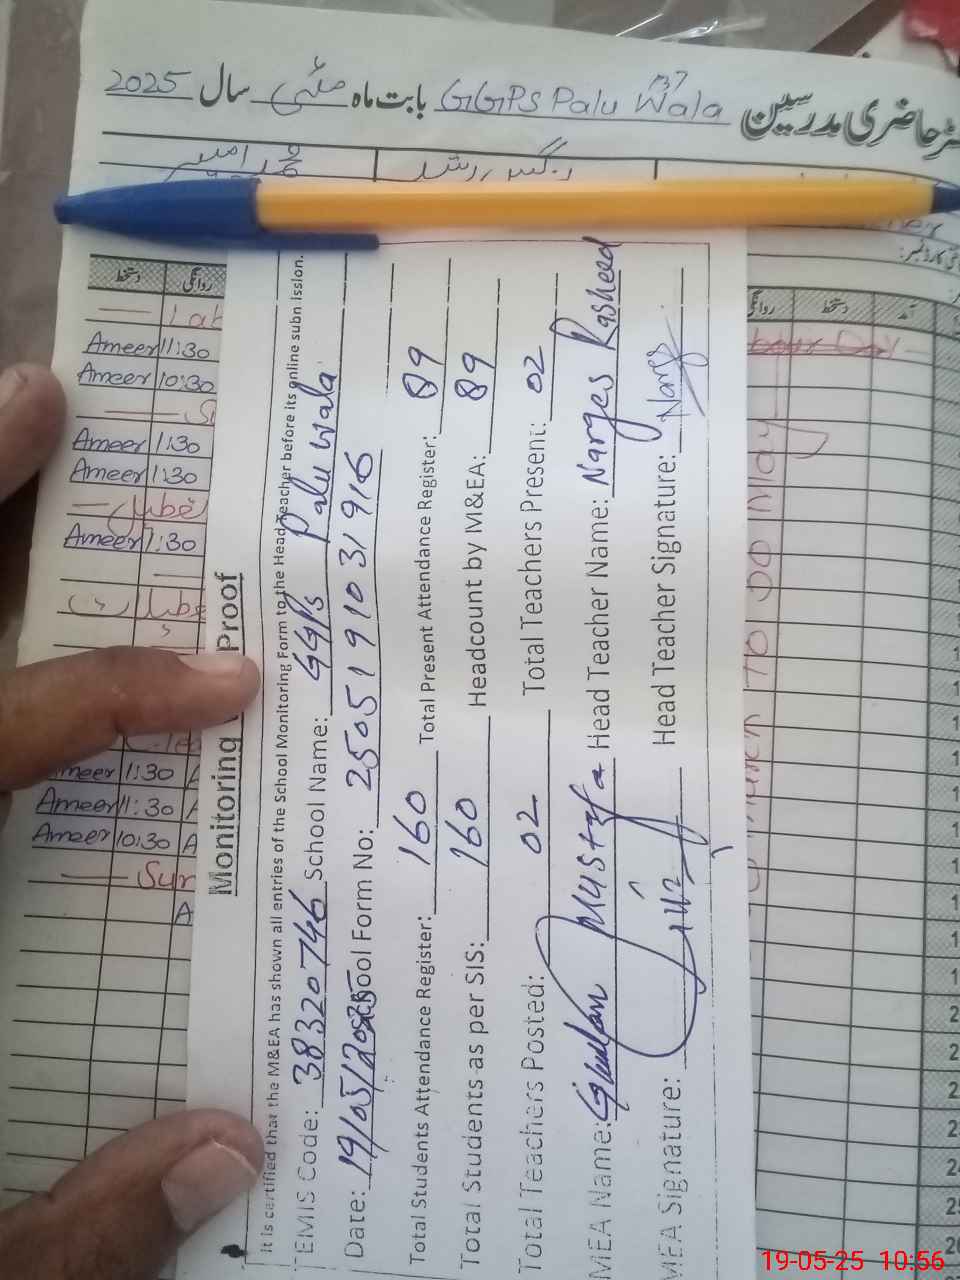 ٹر حاضری مدرسین GGPS Palu Wala بابت ماہ مئی سال 2025
137
نرگس رشد
محمد امیر
دستخط روانگی
Ameer 11:30
Ameer 10:30
Ameer 1:30
Ameer 1:30
Ameer 1:30
Ameer 1:30
Ameer 11:30
Ameer 10:30 A
Sur
A
روانگی دستخط آمد
Monitoring Proof
It is certified that the M&EA has shown all entries of the School Monitoring Form to the Head Teacher before its online submission.
EMIS Code: 38320746 School Name: GGPS Palu Wala
Date: 19/05/2025 School Form No: 2505191031916
Total Students Attendance Register: 160 Total Present Attendance Register: 89
Total Students as per SIS: 160 Headcount by M&EA: 89
Total Teachers Posted: 02 Total Teachers Present: 02
MEA Name: Ghulam Mustafa Head Teacher Name: Narges Rasheed
MEA Signature: Head Teacher Signature: Narges
19-05-25 10:56